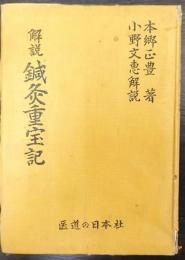 本郷正豊 著
小野文恵 解説
解説 鍼灸重宝記
医道の日本社